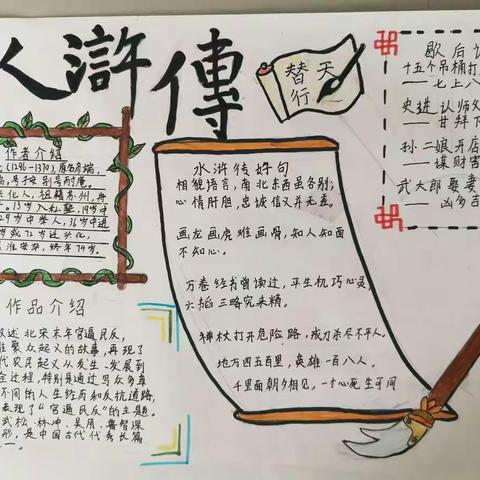 人水浒傳
替天
行
作者介绍
(1296-1370),原名彭端,
号子安,别号耐庵。
兴化人,祖籍苏州,舟
。13岁入私塾,19岁中
29岁中举人,36岁中进
岁或72岁迁兴化,
淮安卒,终年74岁。
作品介绍
叙述北宋末年官逼民反,
聚众起义的故事,再现了
代农民起义从发生、发展到
全过程,特别是通过写众多草
不同的人生经历和反抗道路,
表现了“官逼民反”的主题。
武松、林冲、吴用、鲁智深
形,是中国古代优秀长篇
一。
水浒传好句
相貌语言,南北东西虽各别;
心情肝胆,忠诚信义并无差。
画龙画虎难画骨,知人知面
不知心。
万卷经书曾读过,平生机巧心灵,
六韬三略究来精。
禅杖打开危险路,戒刀杀尽不平人。
地方四五百里,英雄一百八人。
千里面朝夕相见,一寸心死生可同
歇后语
十五个吊桶打
——七上八
史进认师父
——甘拜下
孙二娘开店
——谋财害
武大郎娶妻
——凶多吉